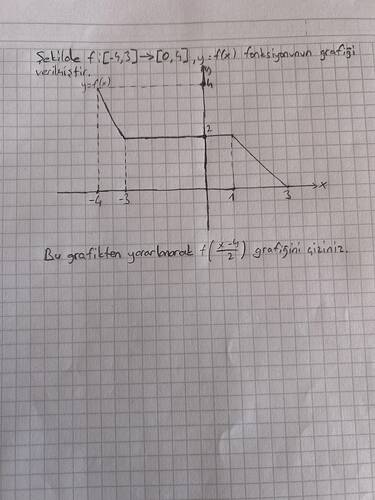 Şekilde f:[-4,3]→[0,4], y=f(x) fonksiyonunun grafiği
verilmiştir.
y
y=f(x)
4
2
-4 -3 1 3 x
Bu grafikten yararlanarak f(x-4/2) grafiğini çiziniz.